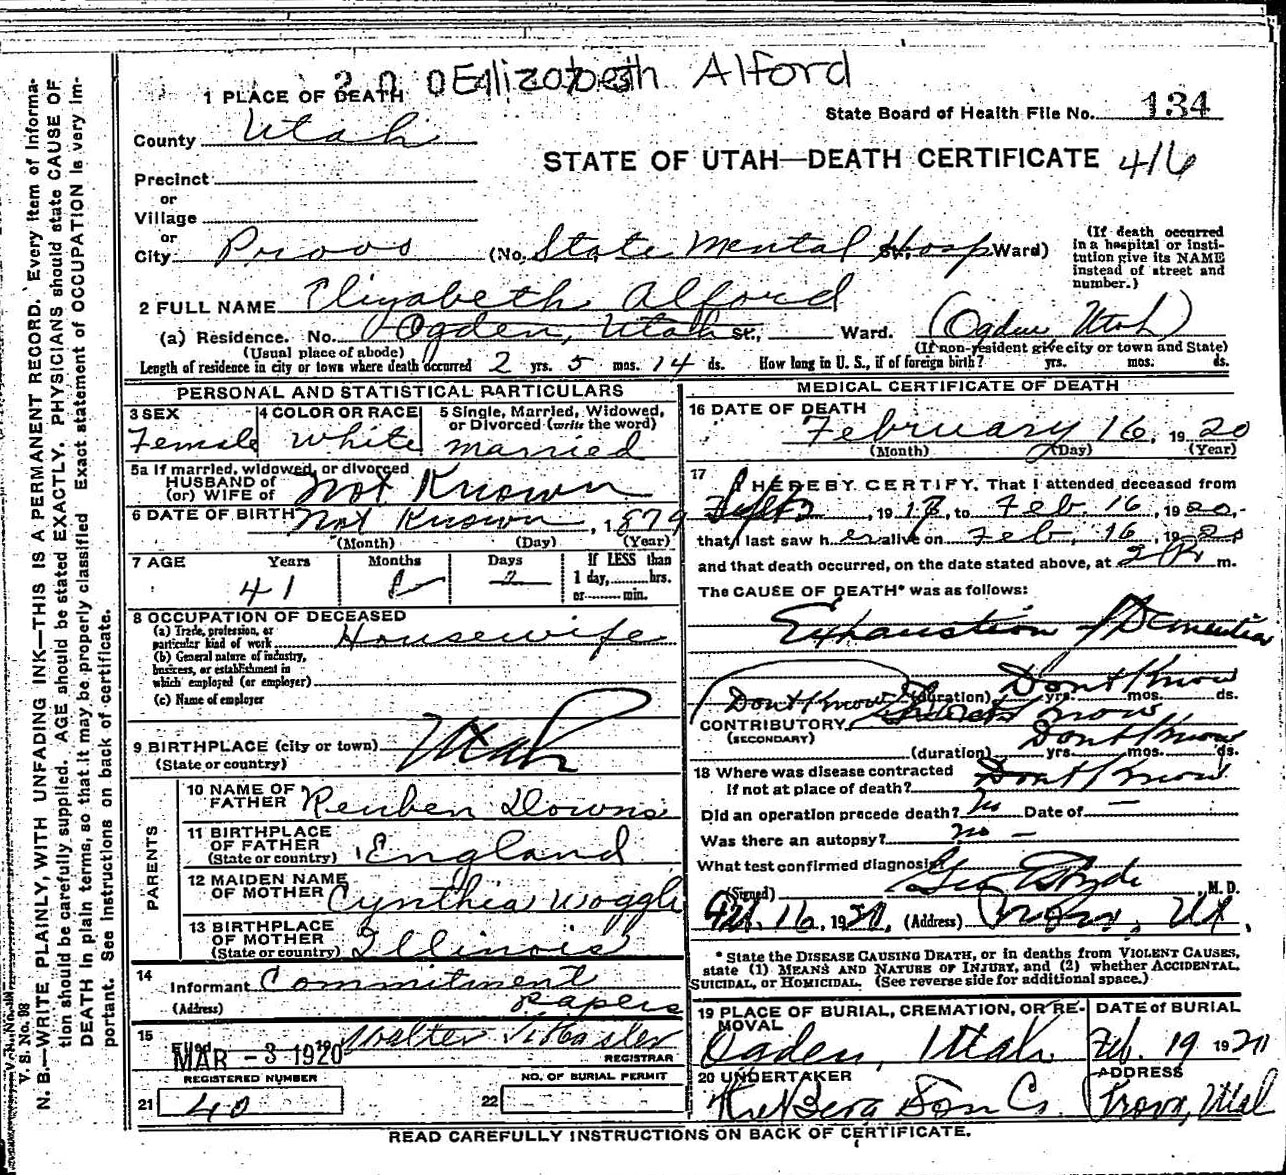 Elizabeth Alford
1 PLACE OF DEATH
State Board of Health File No. 134
County Utah
STATE OF UTAH—DEATH CERTIFICATE 416
Precinct
or
Village
or
City Provo (No. State Mental Hosp St., Ward)
(If death occurred in a hospital or institution give its NAME instead of street and number.)
2 FULL NAME Elizabeth Alford
(a) Residence. No. Ogden, Utah St., Ward. (Ogden Utah)
(Usual place of abode) (If non-resident give city or town and State)
Length of residence in city or town where death occurred 2 yrs. 5 mos. 14 ds. How long in U. S., if of foreign birth? yrs. mos. ds.
PERSONAL AND STATISTICAL PARTICULARS
3 SEX 4 COLOR OR RACE 5 Single, Married, Widowed, or Divorced (write the word)
Female White Married
5a If married, widowed, or divorced
HUSBAND of
(or) WIFE of Not Known
6 DATE OF BIRTH Not Known, 1879
(Month) (Day) (Year)
7 AGE Years Months Days If LESS than
1 day, hrs.
or min.
41
8 OCCUPATION OF DECEASED
(a) Trade, profession, or
particular kind of work Housewife
(b) General nature of industry,
business, or establishment in
which employed (or employer)
(c) Name of employer
9 BIRTHPLACE (city or town) Utah
(State or country)
PARENTS
10 NAME OF FATHER Reuben Downs
11 BIRTHPLACE OF FATHER
(State or country) England
12 MAIDEN NAME OF MOTHER Cynthia Woggle
13 BIRTHPLACE OF MOTHER
(State or country) Illinois
14
Informant Commitment
(Address) Papers
15
Filed MAR - 3 1920 Walter
REGISTRAR
REGISTERED NUMBER NO. OF BURIAL PERMIT
21 40 22
MEDICAL CERTIFICATE OF DEATH
16 DATE OF DEATH
February 16, 1920
(Month) (Day) (Year)
17 I HEREBY CERTIFY, That I attended deceased from
Sept 2, 1917, to Feb. 16, 1920,
that I last saw her alive on Feb. 16, 1920
and that death occurred, on the date stated above, at m.
The CAUSE OF DEATH* was as follows:
Exhaustion of Dementia
Dont Know
Dont Know (duration) yrs. mos. ds.
CONTRIBUTORY
(SECONDARY)
Dont Know
(duration) yrs. mos. ds.
18 Where was disease contracted
If not at place of death? Dont Know
Did an operation precede death? No Date of —
Was there an autopsy? no —
What test confirmed diagnosis
(Signed) Geo , M. D.
Feb. 16, 1920, (Address) Provo, Ut.
* State the DISEASE CAUSING DEATH, or in deaths from VIOLENT CAUSES, state (1) MEANS AND NATURE OF INJURY, and (2) whether ACCIDENTAL, SUICIDAL, or HOMICIDAL. (See reverse side for additional space.)
19 PLACE OF BURIAL, CREMATION, OR REMOVAL DATE of BURIAL
Ogden, Utah Feb. 19 1920
20 UNDERTAKER ADDRESS
Berg Son Co. Provo, Utah
READ CAREFULLY INSTRUCTIONS ON BACK OF CERTIFICATE.
V. S. No. 98
N. B.—WRITE PLAINLY, WITH UNFADING INK—THIS IS A PERMANENT RECORD. Every item of informa-
tion should be carefully supplied. AGE should be stated EXACTLY. PHYSICIANS should state CAUSE OF
DEATH in plain terms, so that it may be properly classified. Exact statement of OCCUPATION is very im-
portant. See instructions on back of certificate.